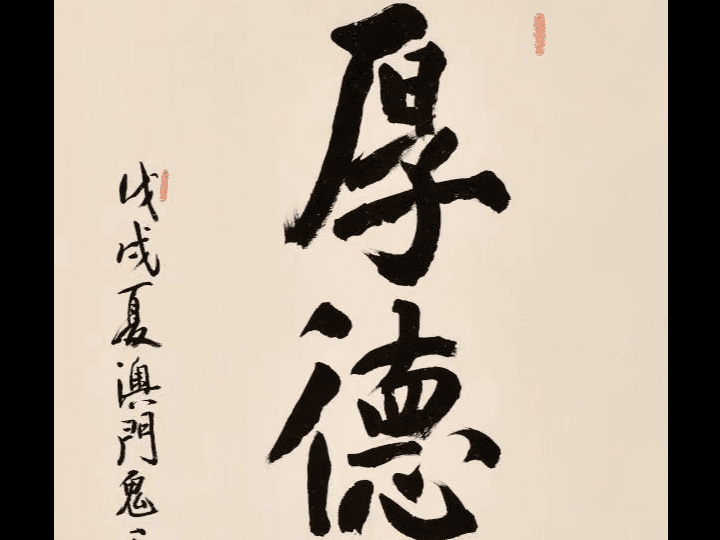 厚德
戊戌夏澳門鬼